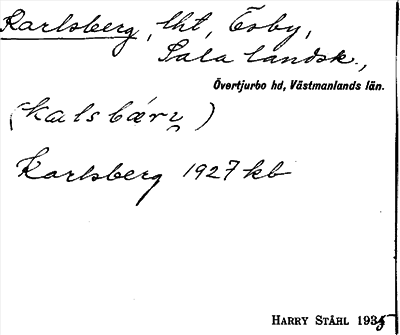 Karlsberg, lht, Esby,
Sala landsk.,
Övertjurbo hd, Västmanlands län.
(kalsbærj)
Karlsberg 1927 kb
HARRY STÅHL 1935